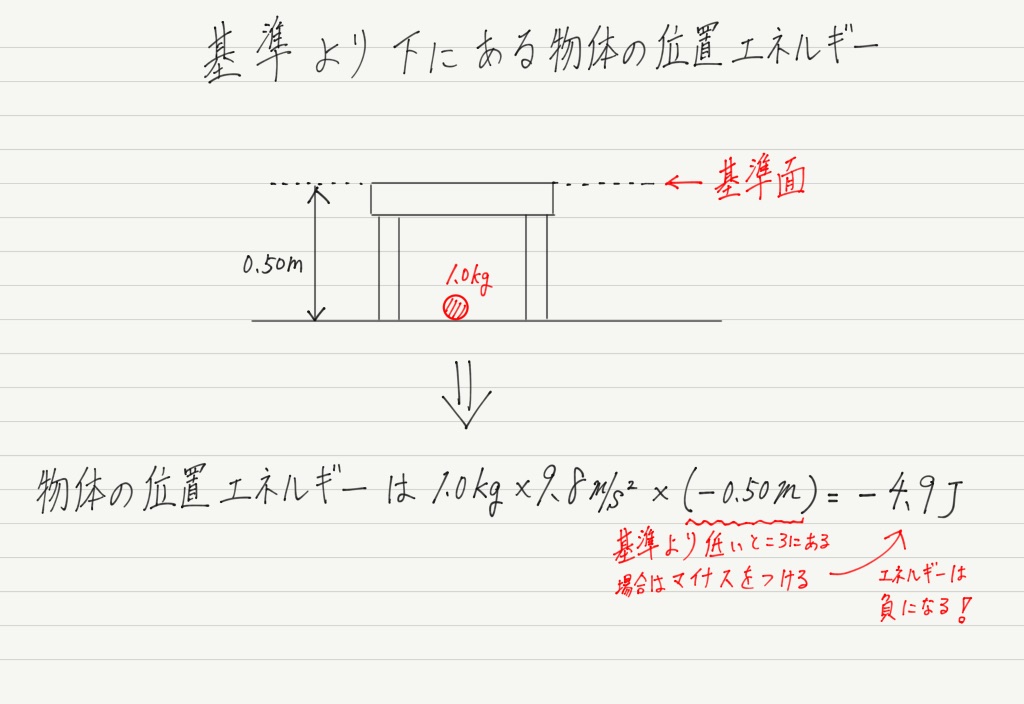 基準より下にある物体の位置エネルギー
←基準面
0.50m
1.0kg
物体の位置エネルギーは 1.0kg×9.8m/s²×(-0.50m)=-4.9J
基準より低いところにある
場合はマイナスをつける
エネルギーは
負になる!